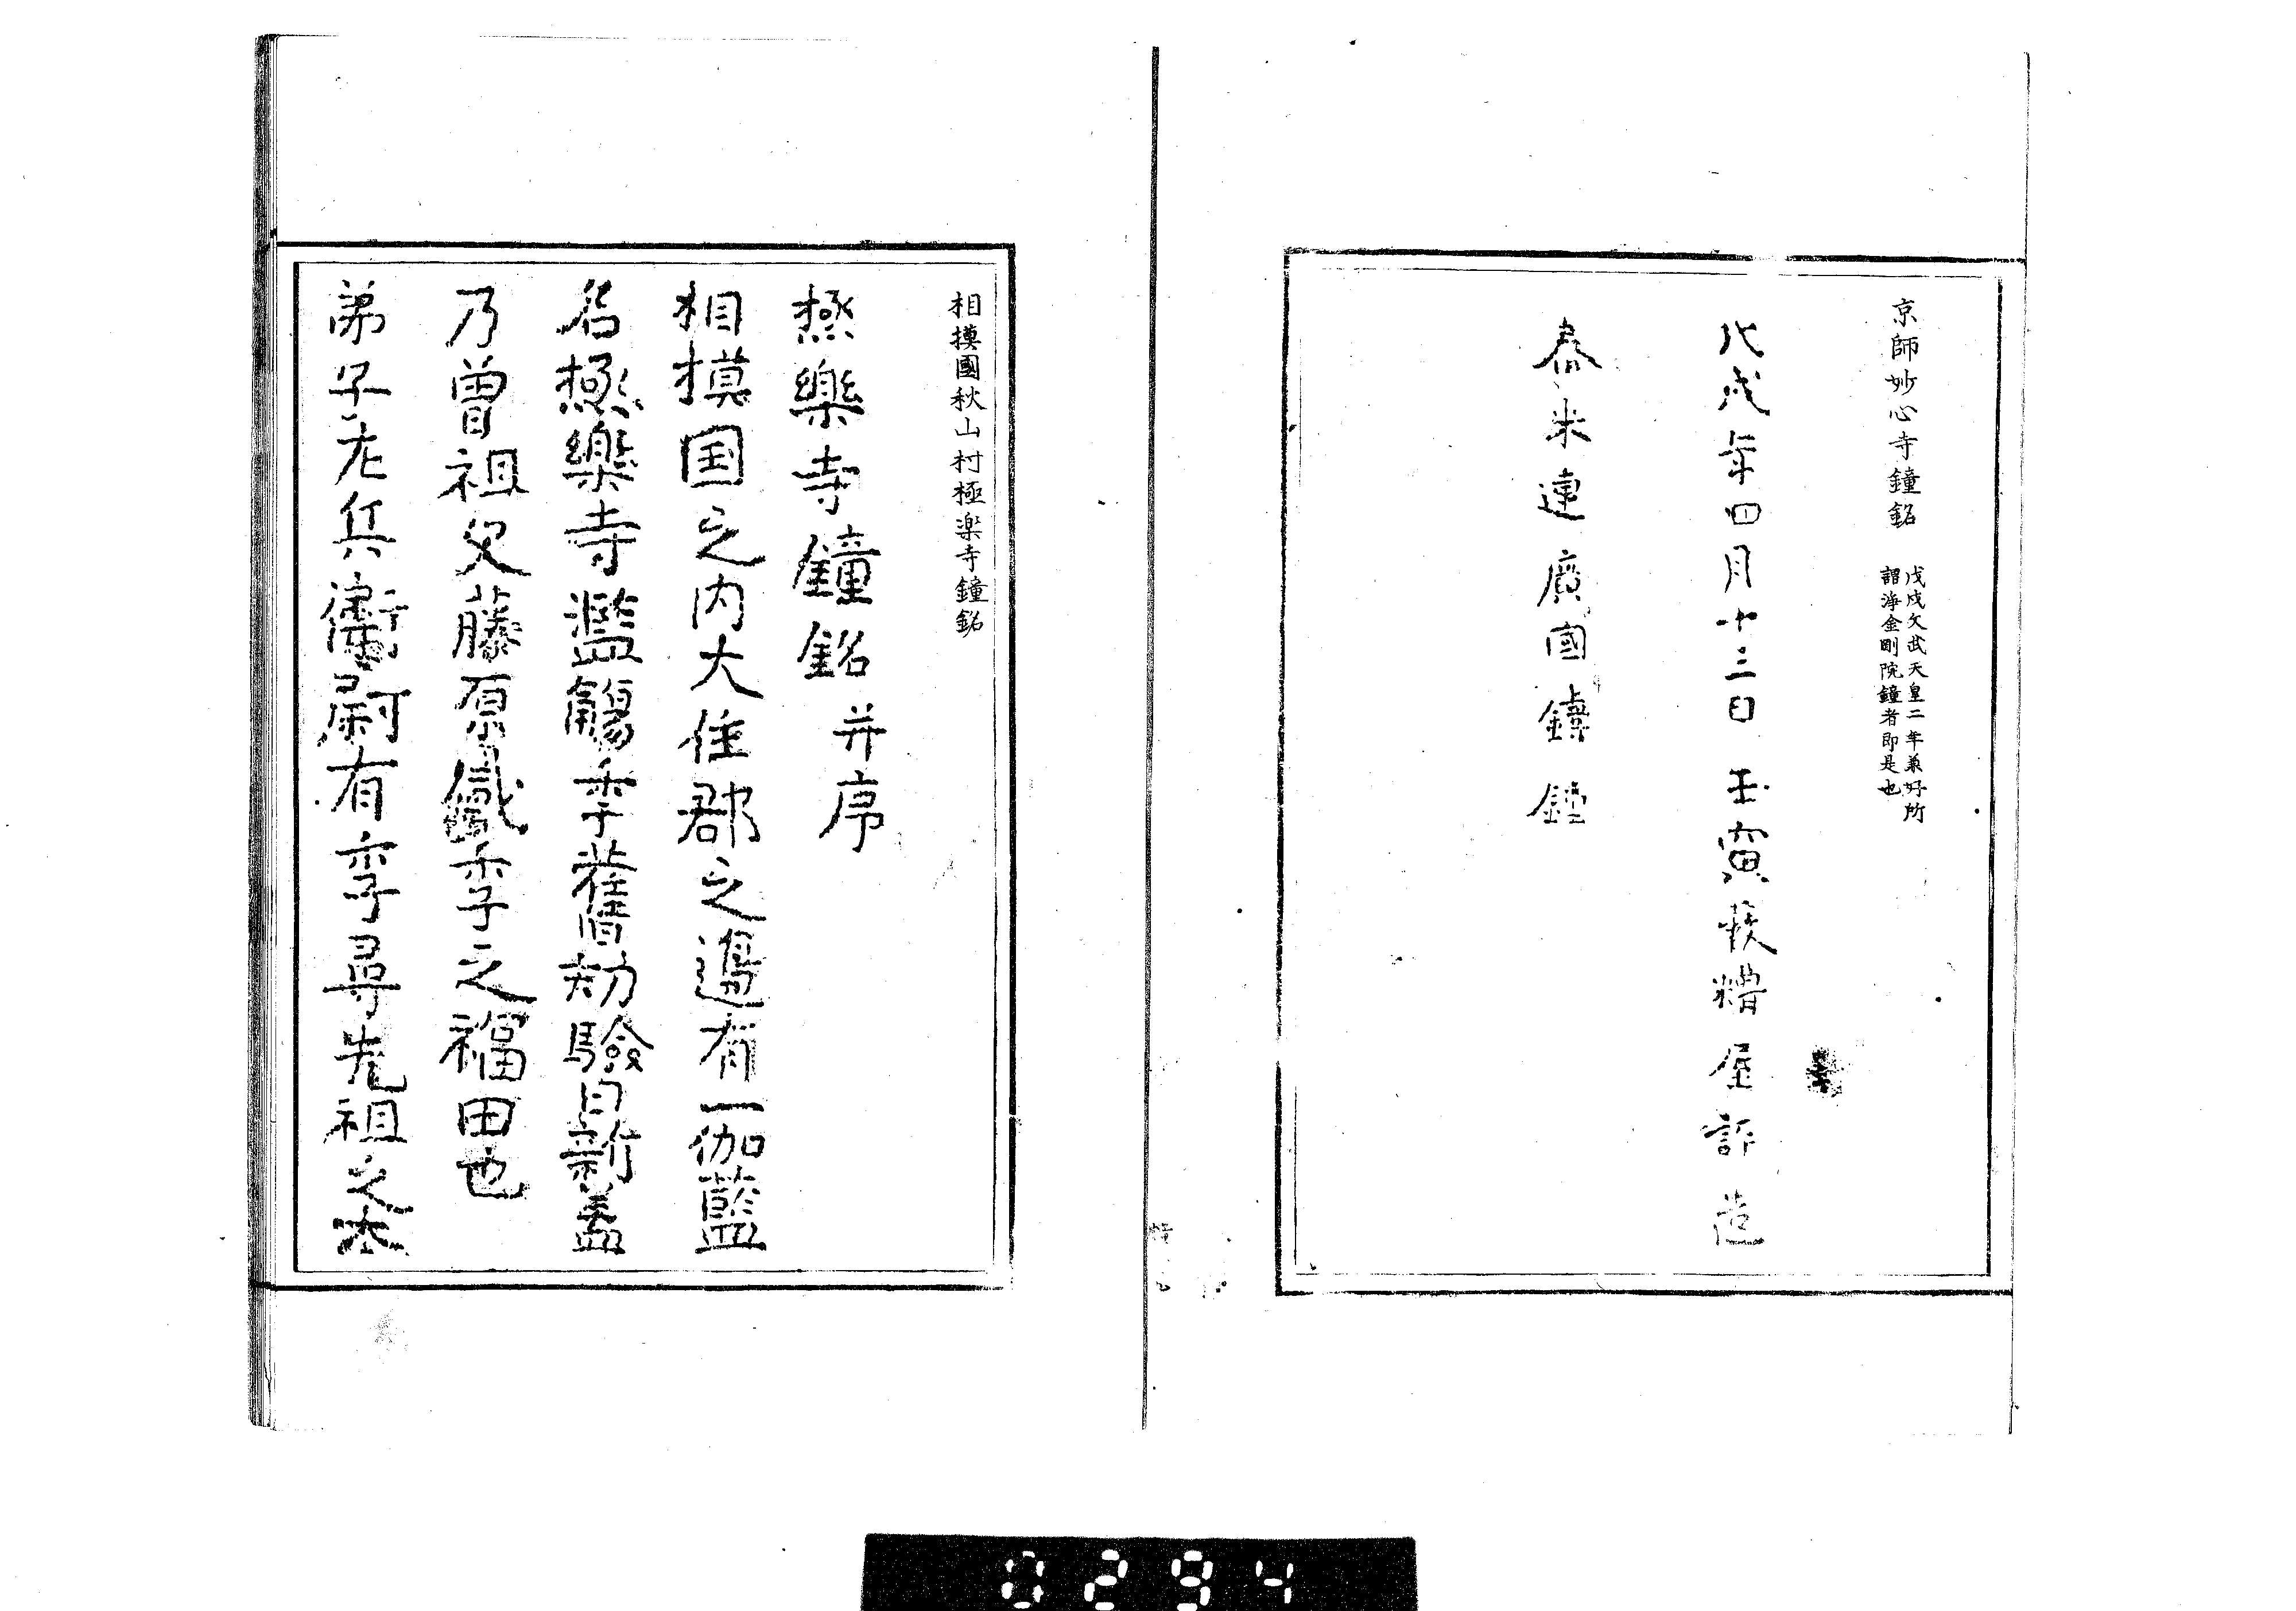 京師妙心寺鐘銘
戊戌文武天皇二年兼好所
謂海金剛院鐘者即是也
戊戌年四月十三日壬寅
糟屋評造
舂米連廣國鑄鐘
相摸國秋山村極楽寺鐘銘
極樂寺鐘銘并序
相摸国之内大住郡之邊有一伽藍
名極樂寺濫觴季舊効驗日新盖
乃曾祖父藤原盛季之福田也
弟子左兵衛尉有季尋先祖之本
0294